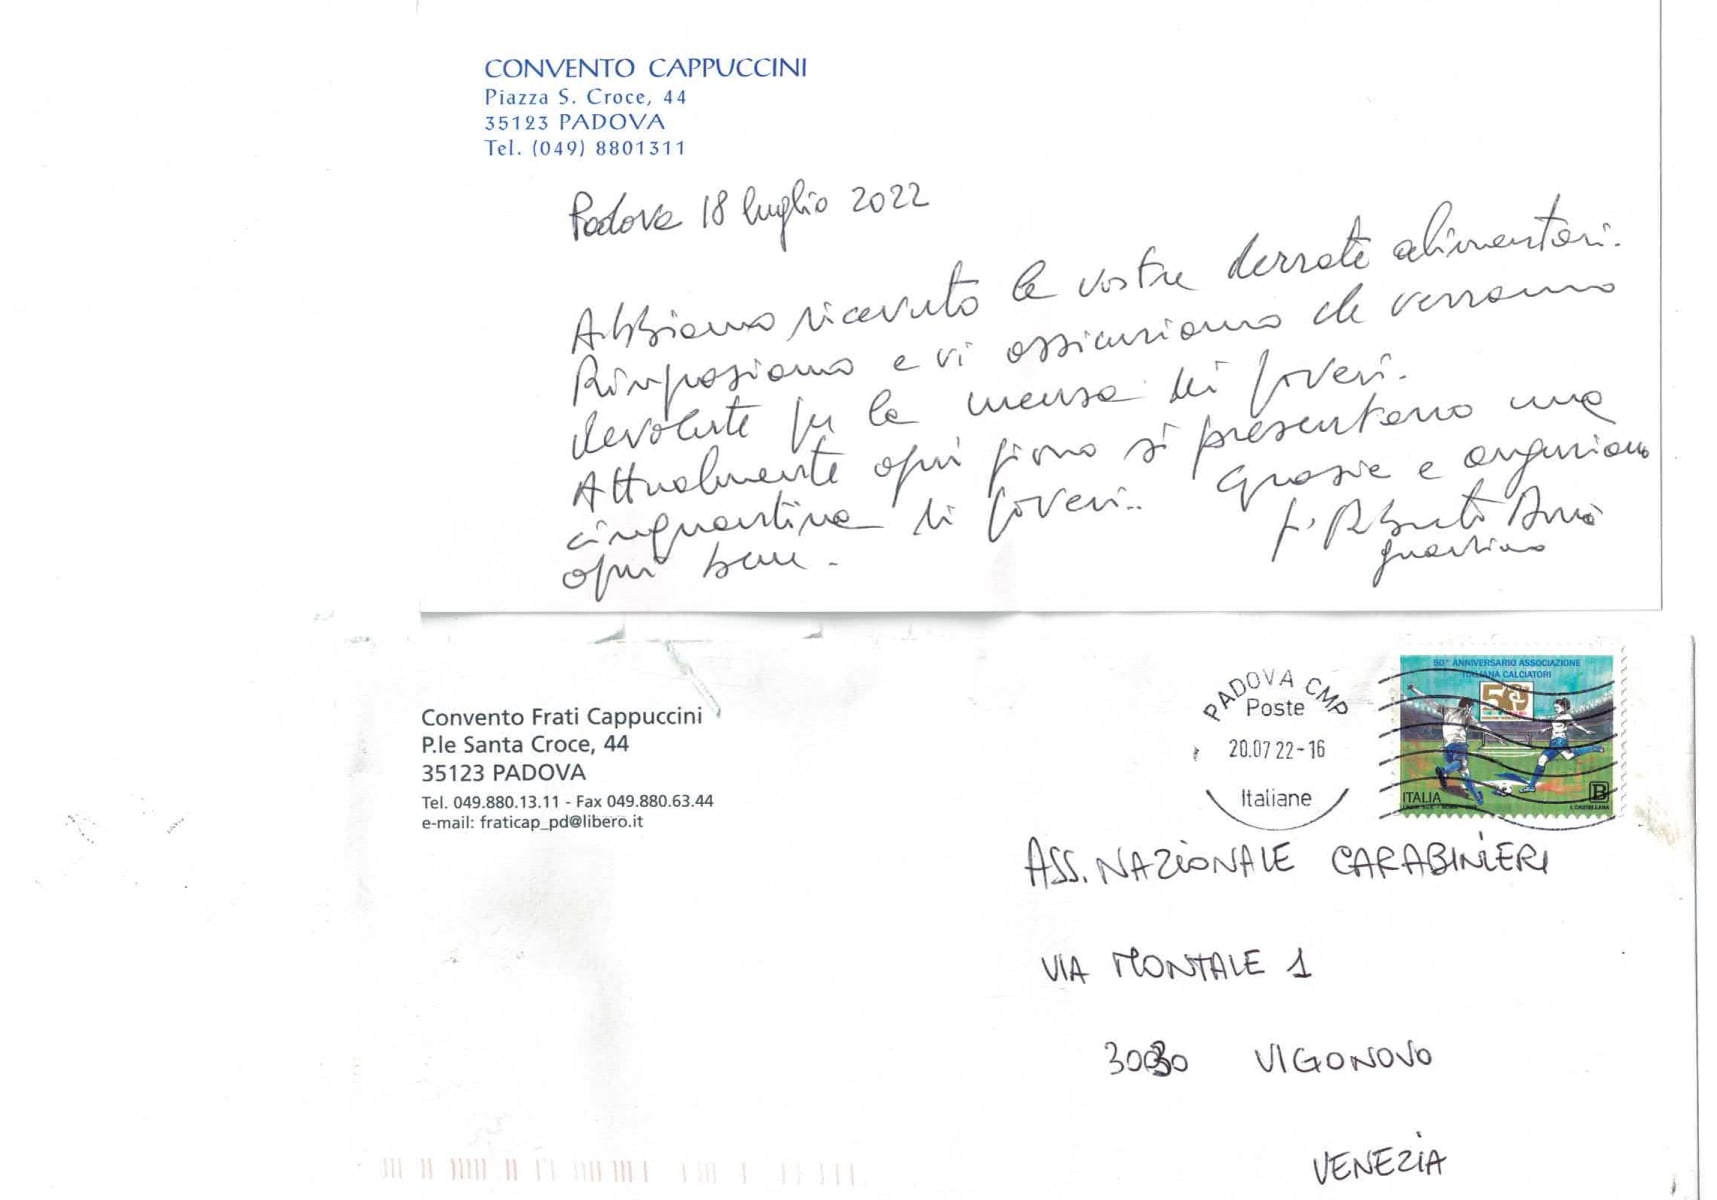 CONVENTO CAPPUCCINI
Piazza S. Croce, 44
35123 PADOVA
Tel. (049) 8801311
Padova 18 luglio 2022
Abbiamo ricevuto le vostre derrate alimentari.
Ringraziamo e vi assicuriamo che verranno
devolute per la mensa dei poveri.
Attualmente ogni giorno si presentano una
cinquantina di poveri.. Grazie e auguriamo
ogni bene.
f. Alberto
guardiano
Convento Frati Cappuccini
P.le Santa Croce, 44
35123 PADOVA
Tel. 049.880.13.11 - Fax 049.880.63.44
e-mail: fraticap_pd@libero.it
PADOVA CMP
Poste
20.07.22-16
Italiane
50° ANNIVERSARIO ASSOCIAZIONE
ITALIANA CALCIATORI
50
ITALIA
B
ASS. NAZIONALE CARABINIERI
VIA MONTALE 1
30030 VIGONOVO
VENEZIA